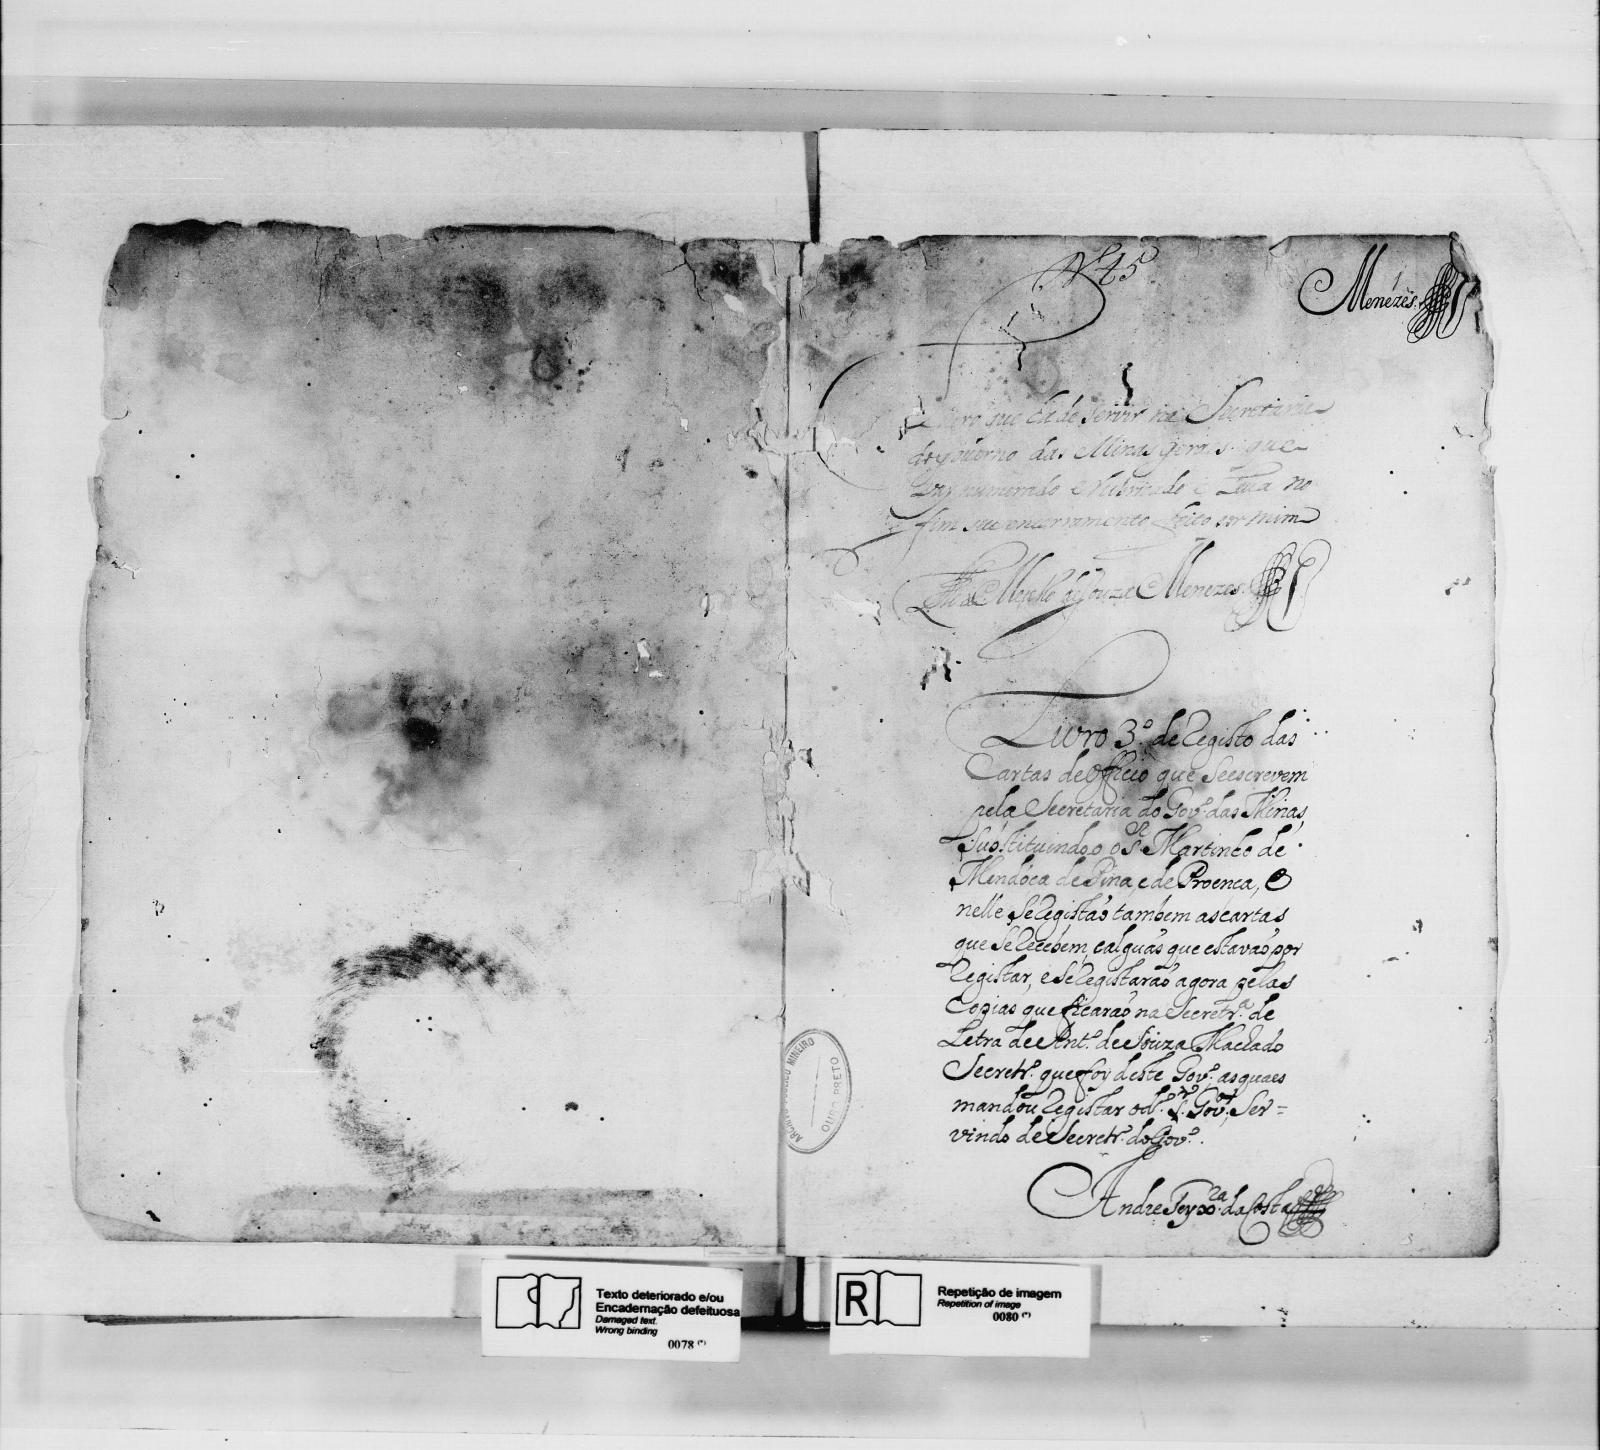 Nº 45
Menézes
Livro que ha de servir na Secretaria
do governo das Minas Gerais que
vay numerado e Rubricado e Leva no
fim seu encerramento feito por mim
de Souza Menezes
Livro 3.º de Registo das
Cartas de Officio que se escrevem
pela Secretaria do Gov.º das Minas,
Substituindo o S.r Martinho de
Mendoça de Pina, e de Proenca, e
nelle se Registaõ tambem as cartas
que se Recebem, e alguãs que estavaõ por
Registar, e se Registaraõ agora pelas
Copias que ficaraõ na Secretr.a de
Letra de Ant.º de Souza Machado
Secretr.º que foy deste Gov.º as quaes
mandou Registar o d.º S.r Gov.or Ser=
vindo de Secretr.º do Gov.º.
Andre Teyx.ra da Costa
ARQUIVO PUBLICO MINEIRO
OURO PRETO
Texto deteriorado e/ou
Encadernação defeituosa
Damaged text.
Wrong binding
0078 (*)
R
Repetição de imagem
Repetition of image
0080 (*)